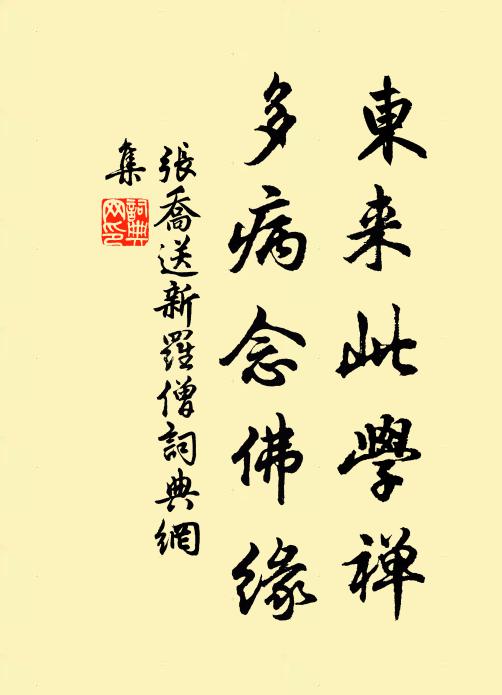 東来此學禅
多病念佛緣
張喬送新羅僧詞典網
集
詞典
网印